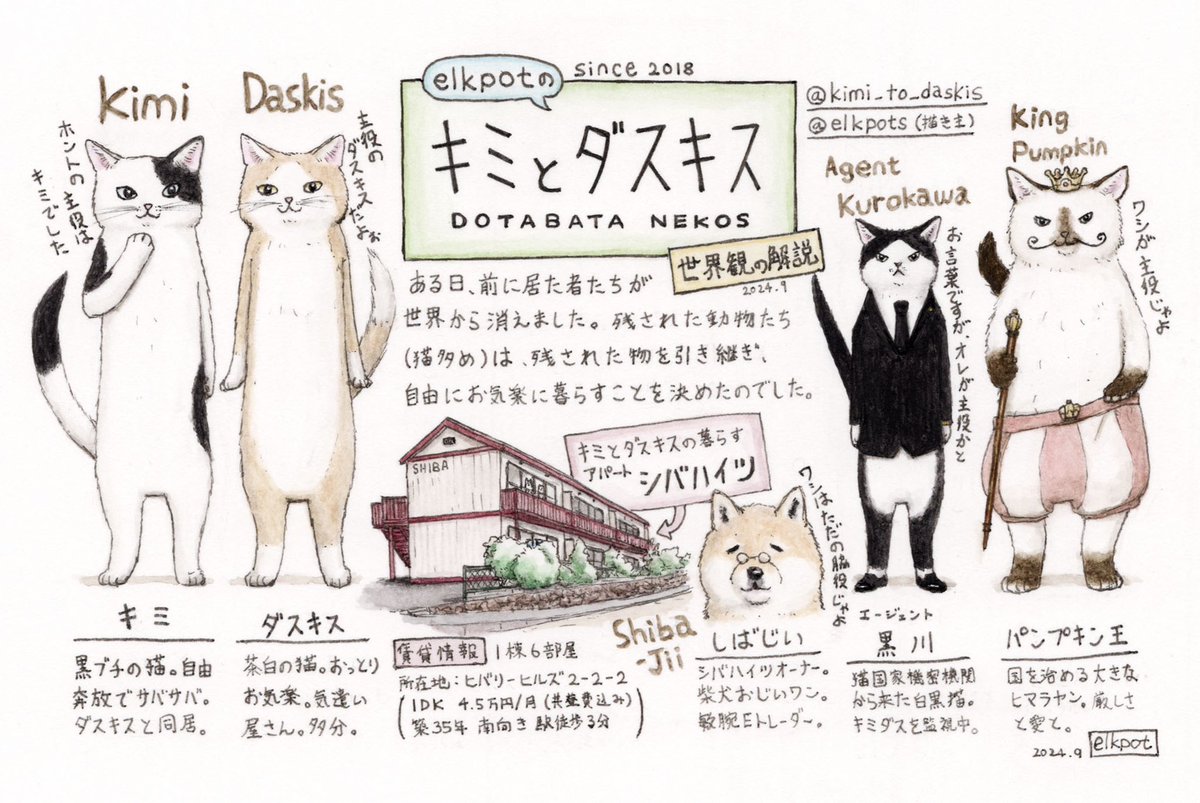 elkpotの
since 2018
キミとダスキス
DOTABATA NEKOS
世界観の解説
2024.9
@kimi_to_daskis
@elkpots (描き主)
Kimi
ホントの主役は
キミでした
Daskis
主役の
ダスキスだよぉ
Agent
Kurokawa
お言葉ですが、オレが主役かと
King
Pumpkin
ワシが主役じゃよ
ある日、前に居た者たちが
世界から消えました。残された動物たち
(猫多め)は、残された物を引き継ぎ、
自由にお気楽に暮らすことを決めたのでした。
SHIBA
キミとダスキスの暮らす
アパート シバハイツ
ワシはただの脇役じゃよ
Shiba
-Jii
キミ
黒ブチの猫。自由
奔放でサバサバ。
ダスキスと同居。
ダスキス
茶白の猫。おっとり
お気楽。気遣い
屋さん。多分。
賃貸情報 1棟6部屋
所在地:ヒバリーヒルズ2-2-2
(1DK 4.5万円/月(共益費込み)
築35年 南向き 駅徒歩3分)
しばじい
シバハイツオーナー。
柴犬おじいワン。
敏腕Eトレーダー。
エージェント
黒川
猫国家機密機関
から来た白黒猫。
キミダスを監視中。
パンプキン王
国を治める大きな
ヒマラヤン。厳しさ
と愛と。
2024.9 elkpot